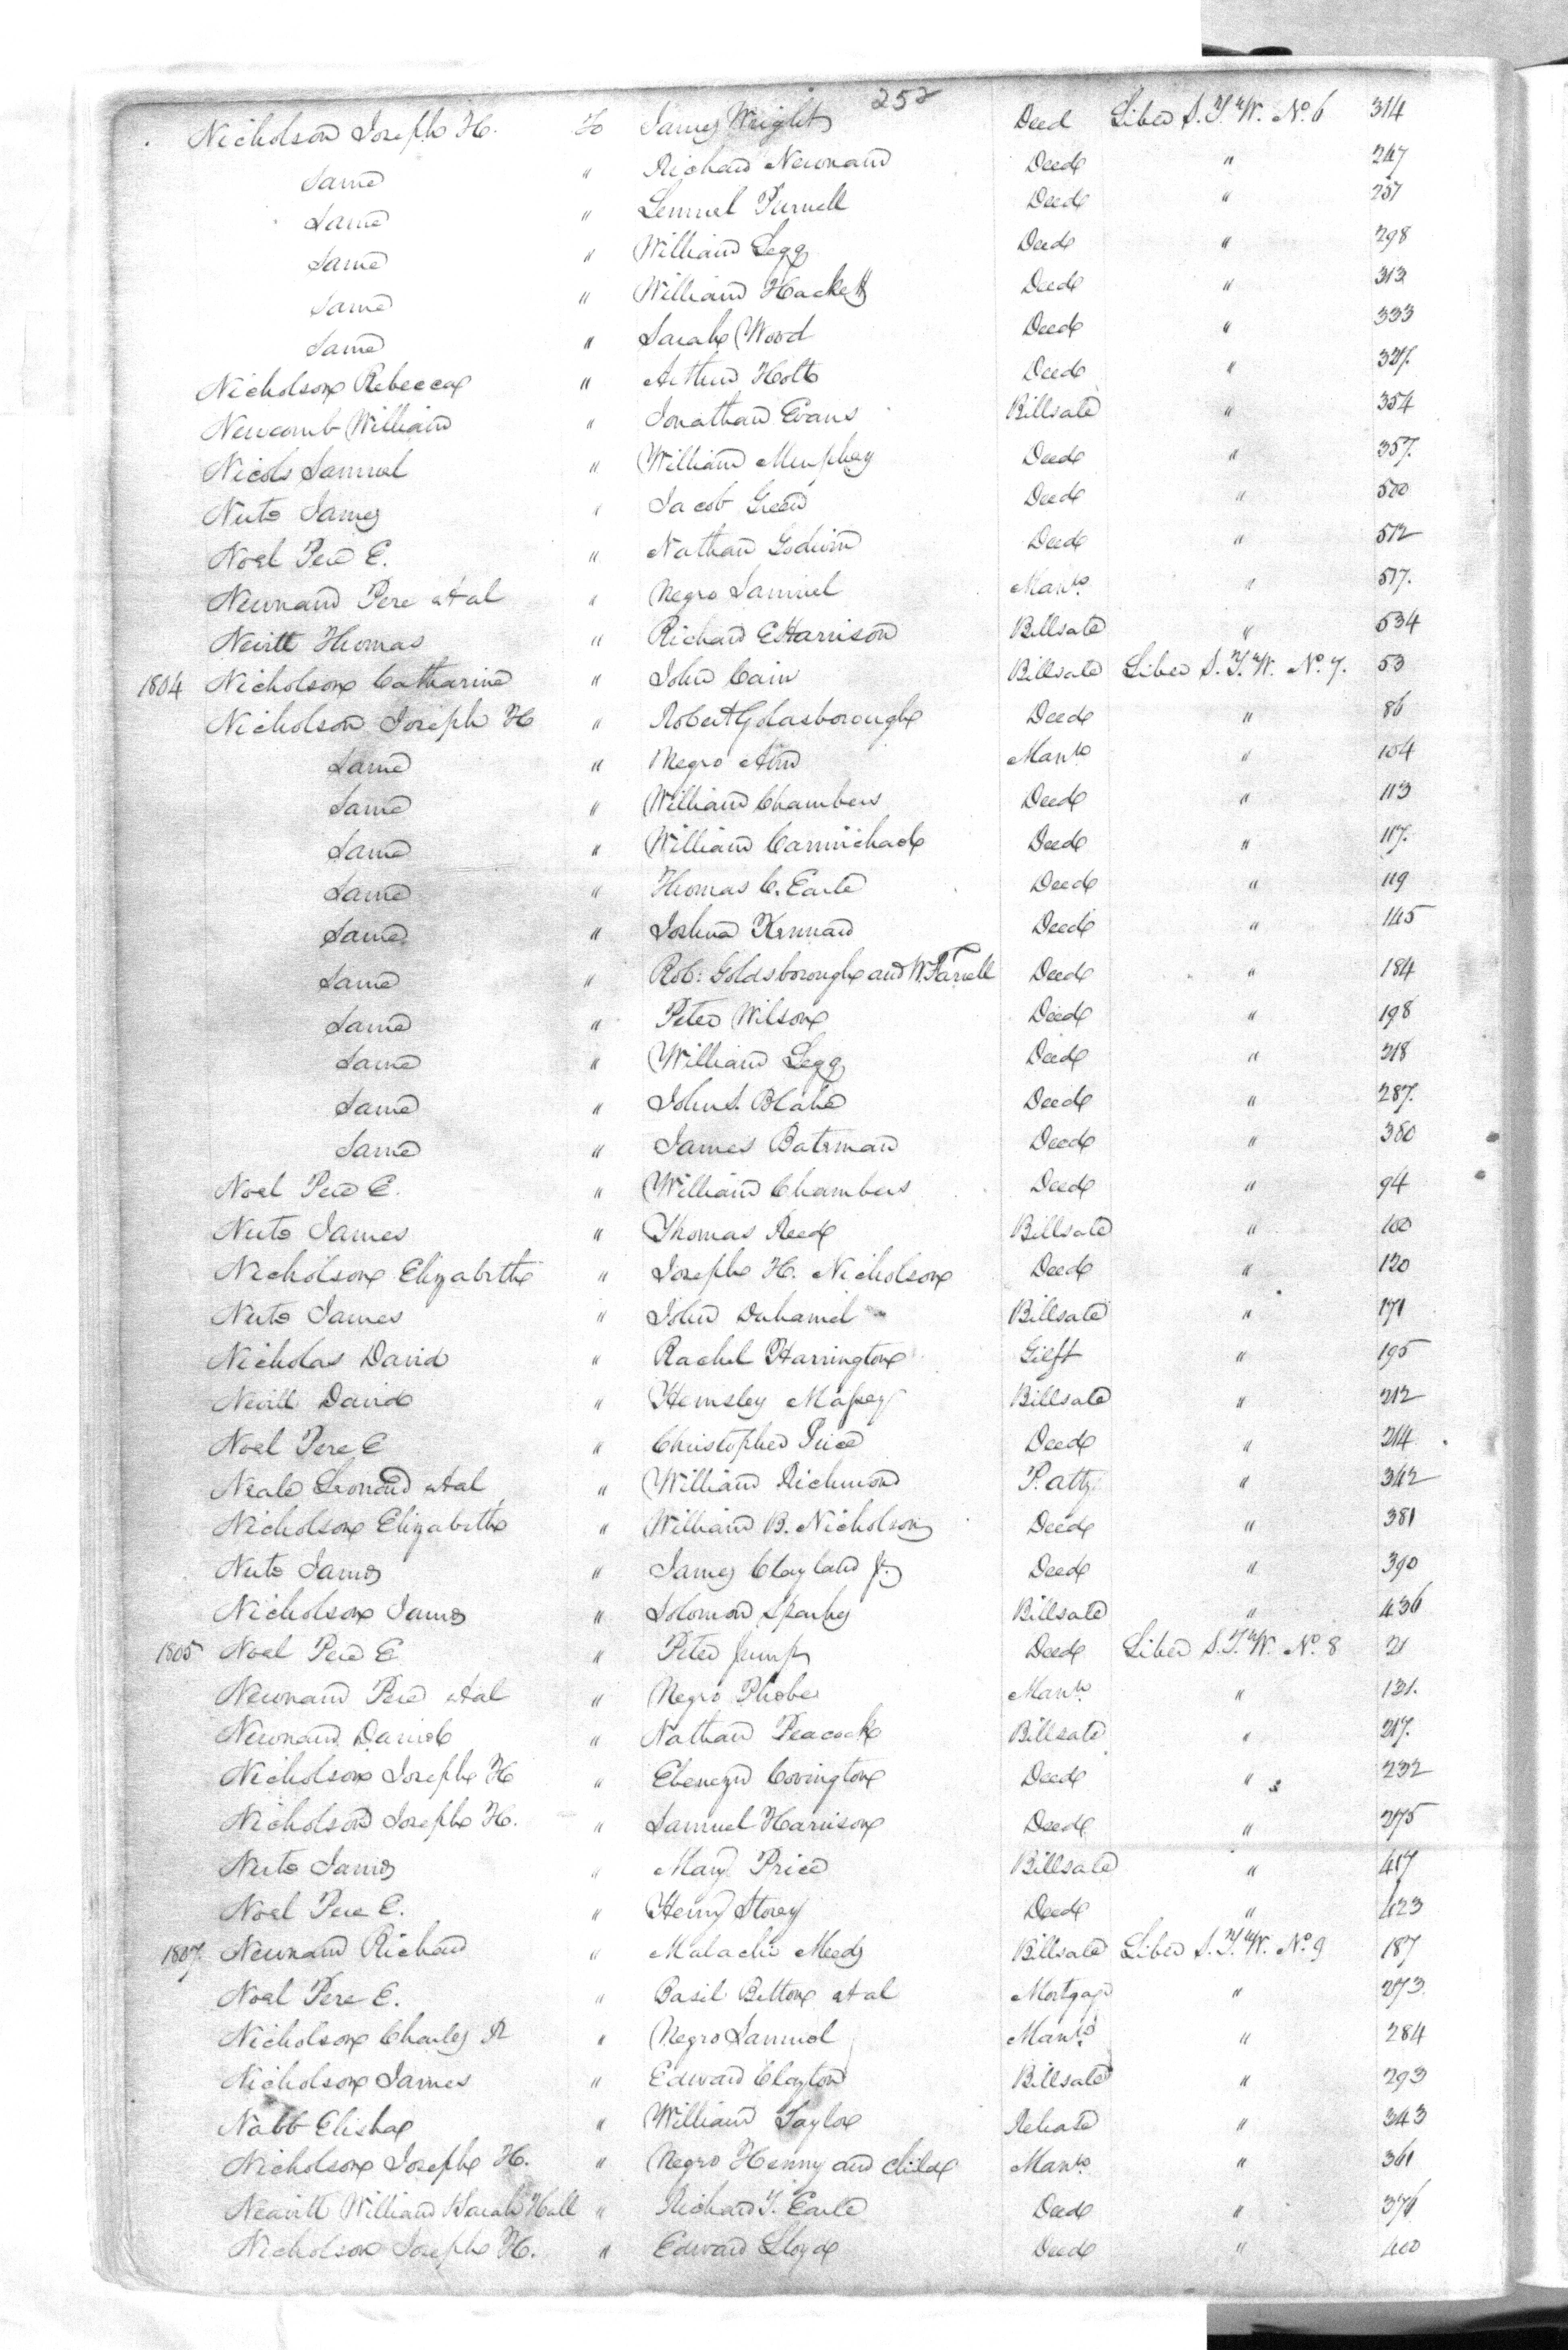 252
Nicholson Joseph H. To James Wright Deed Liber S.T.W. No. 6 314
Same " Richard Newnam Deed " 247
Same " Lemuel Purnell Deed " 257
Same " William Legg Deed " 298
Same " William Hackett Deed " 313
Same " Sarah Wood Deed " 333
Nicholson Rebecca " Arthur Holt Deed "
Newcomb William " Jonathan Evans Billsale " 354
Nicols Samuel " William Murphey Deed " 357.
Nuto James " Jacob Green Deed " 500
Noel Pere E. " Nathan Godwin Deed " 512
Newnam Pere et al " Negro Samuel Mans. " 517.
Nevitt Thomas " Richard E Harrison Billsale " 534
1804 Nicholson Catharine " John Cain Billsale Liber S.T.W. No. 7. 53
Nicholson Joseph H " Robert Goldsborough Deed " 86
Same " Negro Ann Mans " 104
Same " William Chambers Deed " 113
Same " William Carmichael Deed " 117.
Same " Thomas C. Earle Deed " 119
Same " Joshua Kennard Deed " 145
Same " Rob: Goldsborough and W. Farrell Deed " 184
Same " Peter Wilson Deed " 198
Same " William Legg Deed " 218
Same " John S. Blake Deed " 287.
Same " James Bateman Deed " 380
Noel Pere E. " William Chambers Deed " 94
Nuto James " Thomas Reed Billsale " 100
Nicholson Elizabeth " Joseph H. Nicholson Deed " 120
Nuto James " John Duhamel Billsale " 171
Nicholas David " Rachel Harrington Gift " 195
Nevill David " Hemsley Massey Billsale " 212
Noel Pere E " Christopher Price Deed " 214
Neale Leonard et al " William Richmond P. atty " 342
Nicholson Elizabeth " William B. Nicholson Deed " 381
Nuto James " James Clayland Jr. Deed " 390
Nicholson James " Solomon Sparks Billsale " 436
1805 Noel Pere E " Peter Jump Deed Liber S.T.W. No. 8 21
Newnam Pere et al " Negro Phebe Mans. " 131.
Newnam Daniel " Nathan Peacock Billsale " 217.
Nicholson Joseph H " Ebenezer Covington Deed " 232
Nicholson Joseph H. " Samuel Harrison Deed " 275
Nuto James " Mary Price Billsale " 417
Noel Pere E. " Henry Storey Deed " 423
1807. Newnam Richard " Malachi Meeds Billsale Liber S.T.W. No. 9 187
Noel Pere E. " Basil Betton et al Mortgage " 273.
Nicholson Charles R " Negro Samuel Mans. " 284
Nicholson James " Edward Clayton Billsale " 293
Nabb Elisha " William Taylor Release " 343
Nicholson Joseph H. " Negro Henny and child Mans. " 361
Neavitt William & Sarah Hall " Richard T. Earle Deed " 376
Nicholson Joseph H. " Edward Lloyd Deed " 400